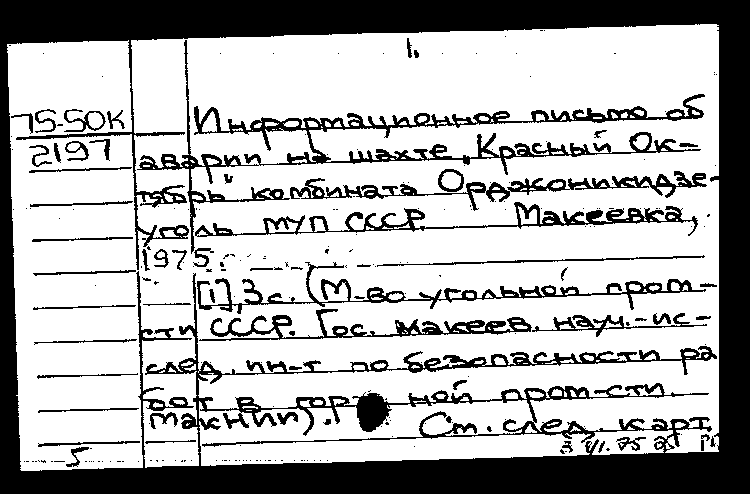 1.
75-50К
2197
Информационное письмо об
аварии на шахте „Красный Ок-
тябрь" комбината Орджоникидзе-
уголь МУП СССР. Макеевка,
1975.
[1], 3 с. (М-во угольной пром-
сти СССР. Гос. макеев. науч.-ис-
след. ин-т по безопасности ра
бот в горной пром-сти.
МакНИИ).
См. след. карт.
5